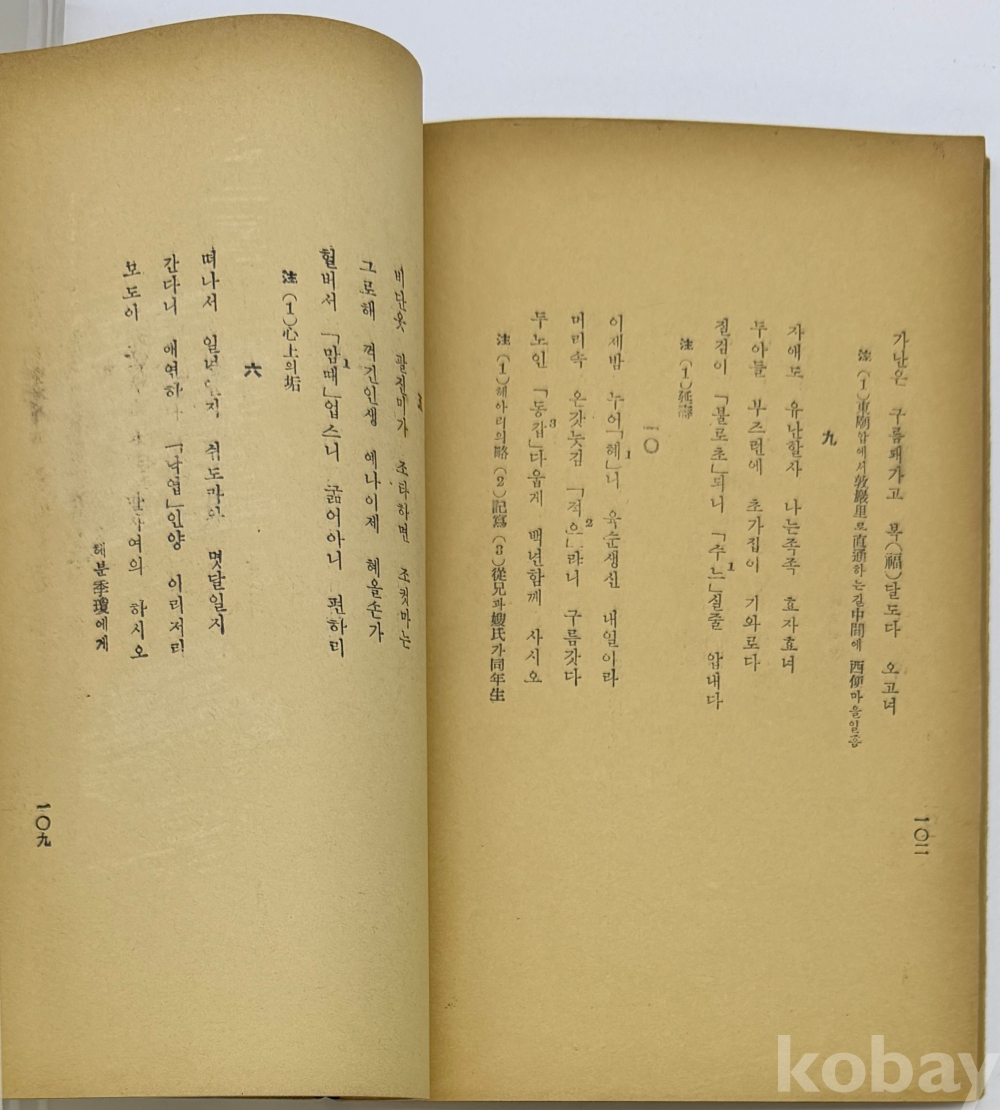 가난은 구름돼가고 복(福)달도다 오고녀
注 (1)東廟앞에서敦巖里로直通하는길中間에 西便마을일홈
九
자애도 유난할사 나는족족 효자효녀
두아들 부즈런에 초가집이 기와로다
질검이 「불로초」되니 「추느」실줄 압내다
1
注 (1)延壽
一〇
이제밤 누어「혜」니 육순생신 내일이라
1
머리속 온갓늣김 「적으」랴니 구름갓다
2
두노인 「동갑」다웁게 백년함께 사시오
3
注 (1)헤아리의略 (2)記寫 (3)從兄과嫂氏가同年生
一〇二
비단옷 팔진미가 조타하면 조켓마는
그로해 꺽긴인생 예나이제 혜올손가
헐버서 「맘때」업스니 굶어아니 편하리
1
注 (1)心上의垢
六
떠나서 일년 쉬도마 몃달일시
간다니 애연하 「낙엽」인양 이리저리
모도이 여의 하시오
해분季瓊에게
一〇九
kobay